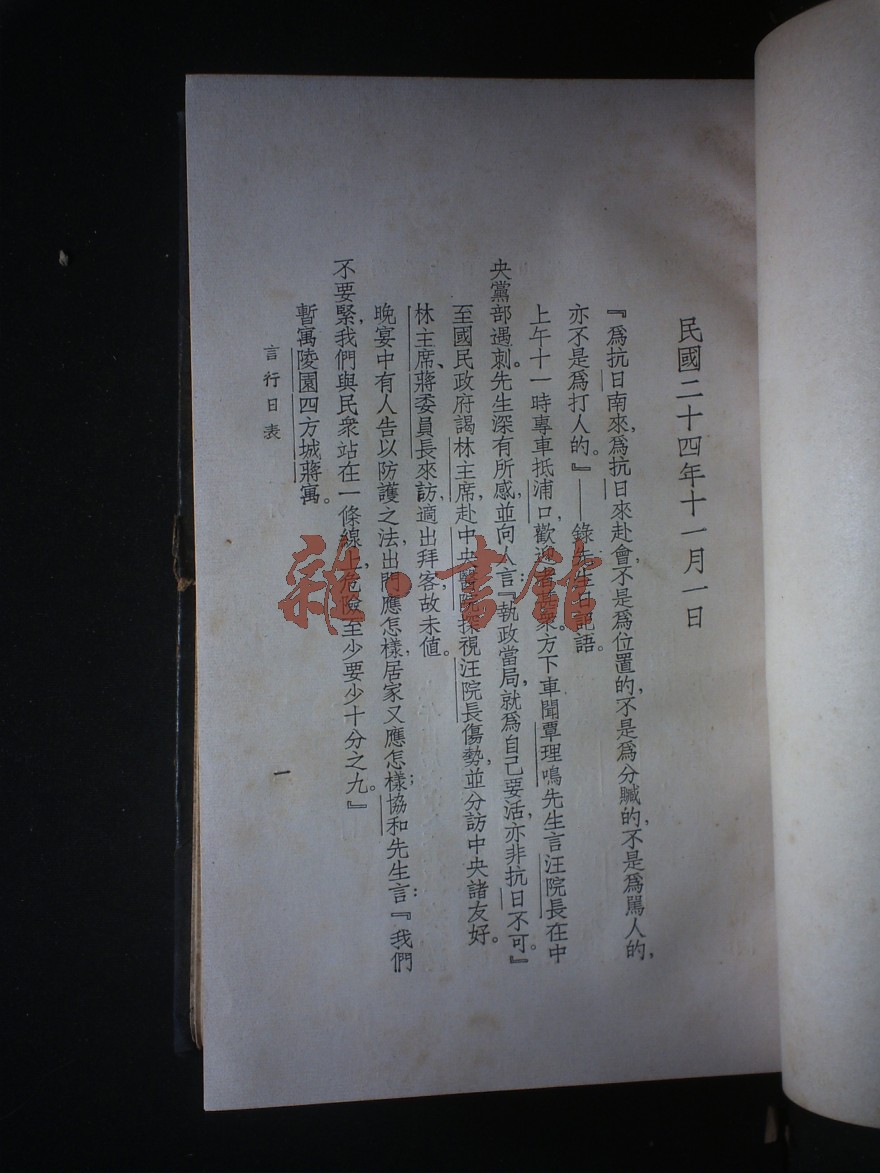 民國二十四年十一月一日
『爲抗日南來，爲抗日來赴會，不是爲位置的，不是爲分贓的，不是爲罵人的，
亦不是爲打人的。』——錄先生日記語。
上午十一時專車抵浦口，歡迎者甚衆。方下車聞覃理鳴先生言汪院長在中
央黨部遇刺。先生深有所感，並向人言『執政當局，就爲自己要活，亦非抗日不可。』
至國民政府謁林主席，赴中央醫院探視汪院長傷勢，並分訪中央諸友好。
林主席、蔣委員長來訪，適出拜客故未值。
晚宴中有人告以防護之法，出門應怎樣，居家又應怎樣；協和先生言：『我們
不要緊，我們與民衆站在一條線上，危險至少要少十分之九。』
暫寓陵園四方城蔣寓。
言行日表
一
雜·書館